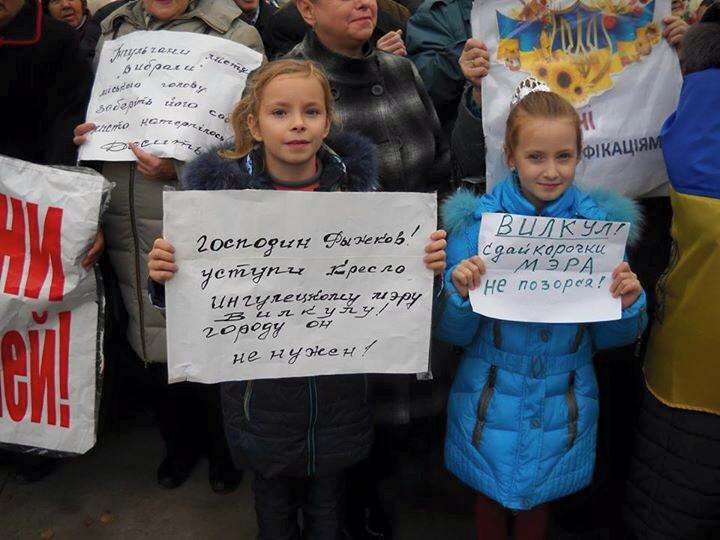 Інгульчани місту
"Вибрали"
міського голову
заберіть його
місто натерпілось
Досить
НИ
ей!
господин Рыжков!
уступи кресло
Ингулецкому мэру
Вилкулу!
городу он
не нужен!
НІ
ФІКАЦІЯМ
ВИЛКУЛ!
сдай корочки
МЭРА
не позорся!